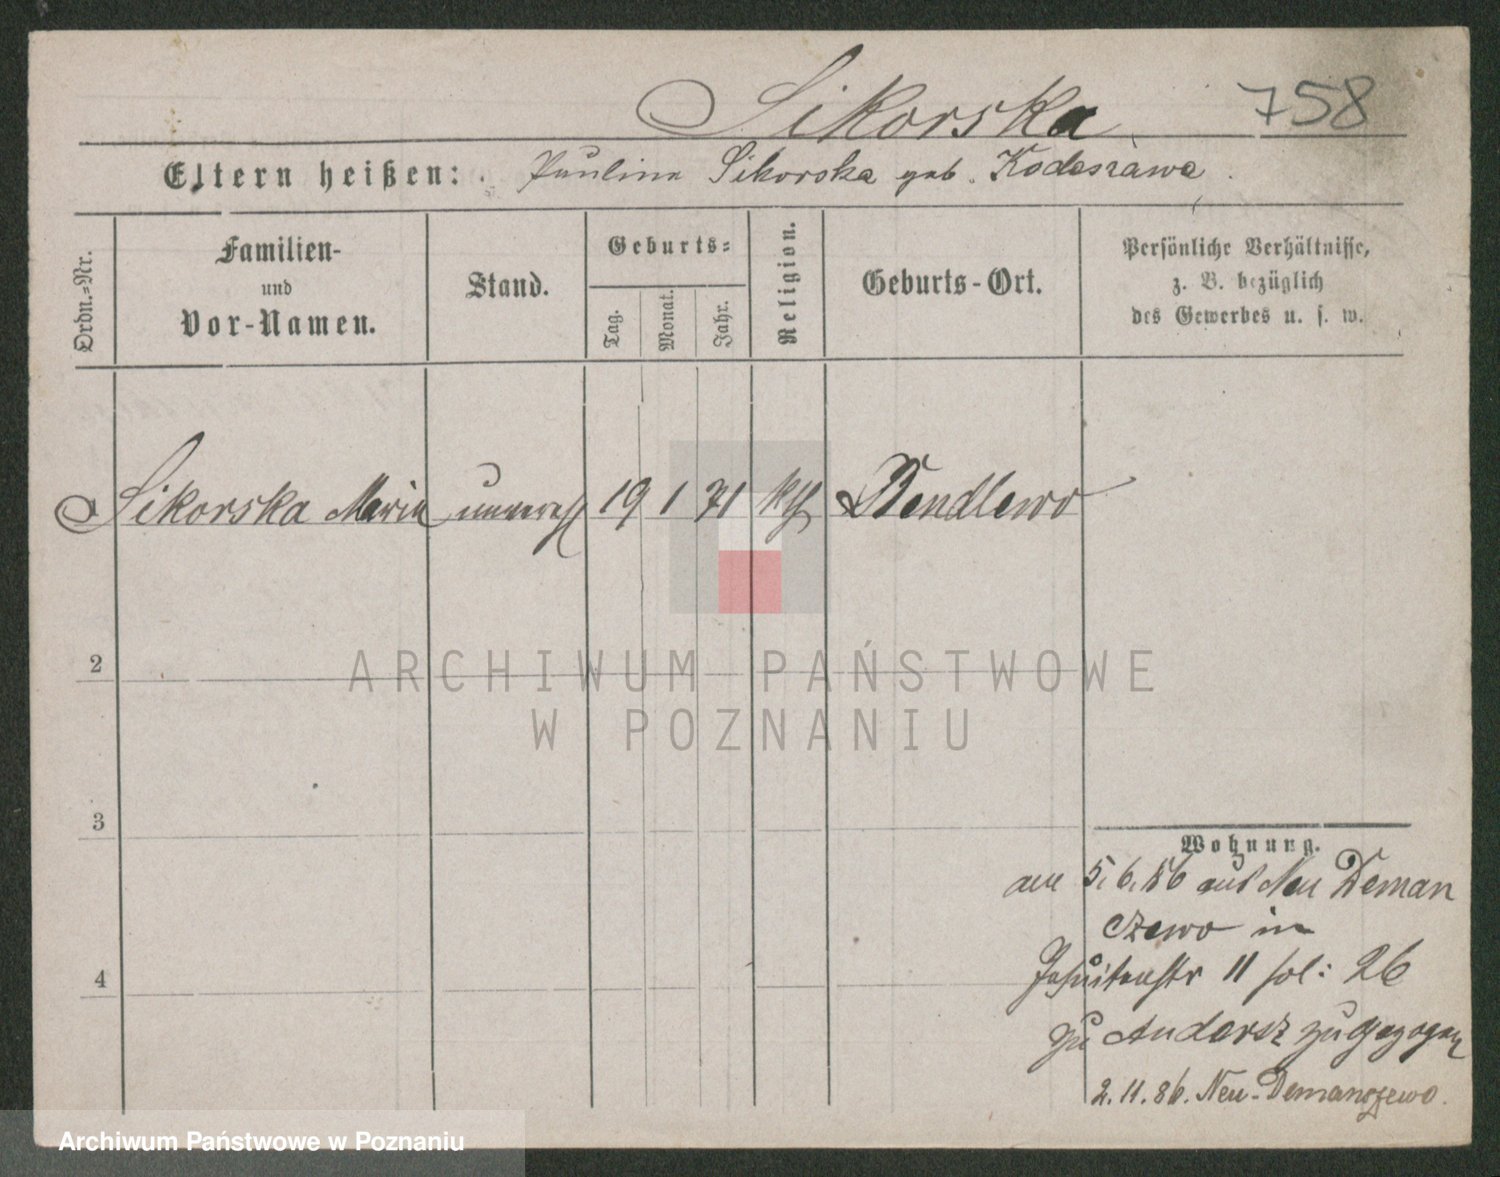 Sikorska 758
Eltern heißen: Paulina Sikorska geb. Kodeszawa
Ordn.-Nr.
Familien-
und
Vor-Namen.
Stand.
Geburts-
Tag.
Monat.
Jahr.
Religion.
Geburts-Ort.
Persönliche Verhältnisse,
z. B. bezüglich
des Gewerbes u. s. w.
Sikorska Maria unvereh 19 1 71 kth Bendlewo
2
ARCHIWUM PAŃSTWOWE
W POZNANIU
3
Wohnung.
am 5.6.86 aus Neu Deman
czewo in
Jesuitenstr 11 fol: 26
zu Andersz zugezogen
4
2.11.86. Neu-Demanczewo.
Archiwum Państwowe w Poznaniu